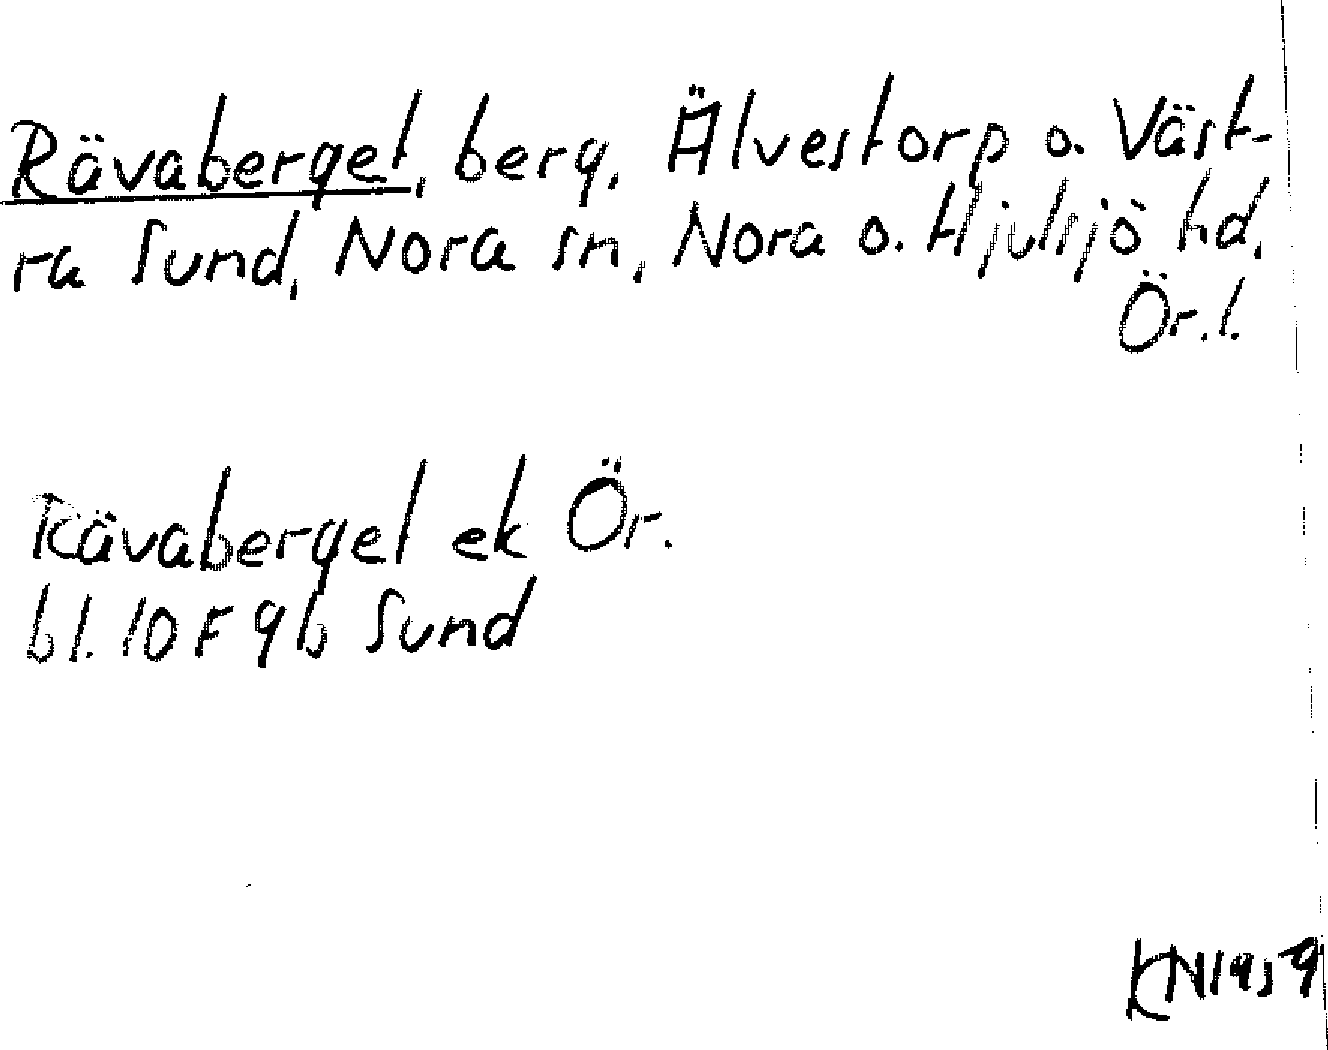 Rävaberget, berg, Älvestorp o. Väst-
ra Sund, Nora sn, Nora o. Hjulsjö hd,
Ör.l.
Rävaberget ek Ör.
bl. 10 F 9b Sund
KN 1959